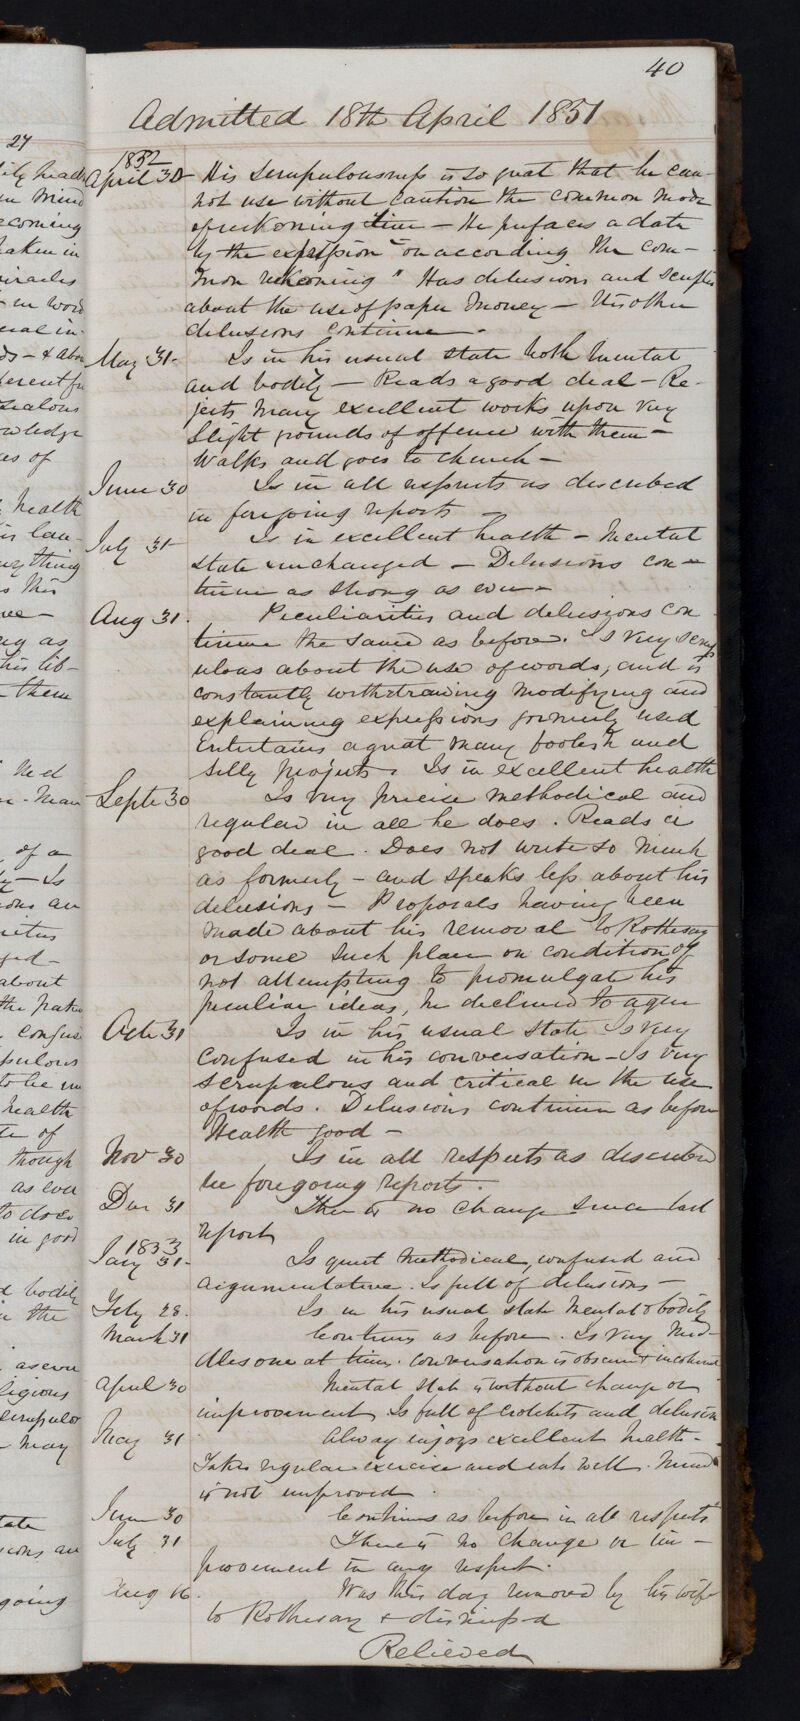 40
Admitted 18th April 1851
1852
April 30 His scrupulousness is so great that he can-
not use without caution the common mode
of reckoning time - He prefaces a date
by the expression "on according the com-
mon reckoning" Has delusions and scruples
about the use of paper money - His other
delusions continue.
May 31- Is in his usual state both mental
and bodily - Reads a good deal - Re-
jects many excellent works upon very
slight grounds of offence with them -
Walks and goes to church -
June 30 Is in all respects as described
in foregoing reports -
July 31- Is in excellent health - Mental
state unchanged - Delusions con-
tinue as strong as ever -
Aug 31. Peculiarities and delusions con
tinue the same as before. Is very scrup
ulous about the use of words, and is
constantly withdrawing modifying and
explaining expressions formerly used
Entertains a great many foolish and
silly projects. Is in excellent health
Septr 30 Is very precise methodical and
regular in all he does. Reads a
good deal. Does not write so much
as formerly - and speaks less about his
delusions - Proposals having been
made about his removal to Rothesay
or some such place on condition of
not attempting to promulgate his
peculiar ideas, he declined to agree
Oct 31 Is in his usual state Is very
confused in his conversation - Is very
scrupulous and critical in the use
of words. Delusions continue as before
Health good -
Nov 30 Is in all respects as described
in foregoing reports.
Dec 31 There is no change since last
report
1853
Jany 31- Is quiet methodical, confused and
argumentative. Is full of delusions -
Feby 28. Is in his usual state mental & bodily
March 31 Continues as before. Is very med-
dlesome at times. Conversation is obscure & incoherent
April 30 Mental state is without change or
improvement Is full of crotchets and delusions
May 31 Always enjoys excellent health -
Takes regular exercise and eats well. Mind
is not improved.
June 30 Continues as before in all respects
July 31 There is no change or im-
provement in any respect.
Aug 16. Was this day removed by his wife
to Rothesay & dismissed
Relieved